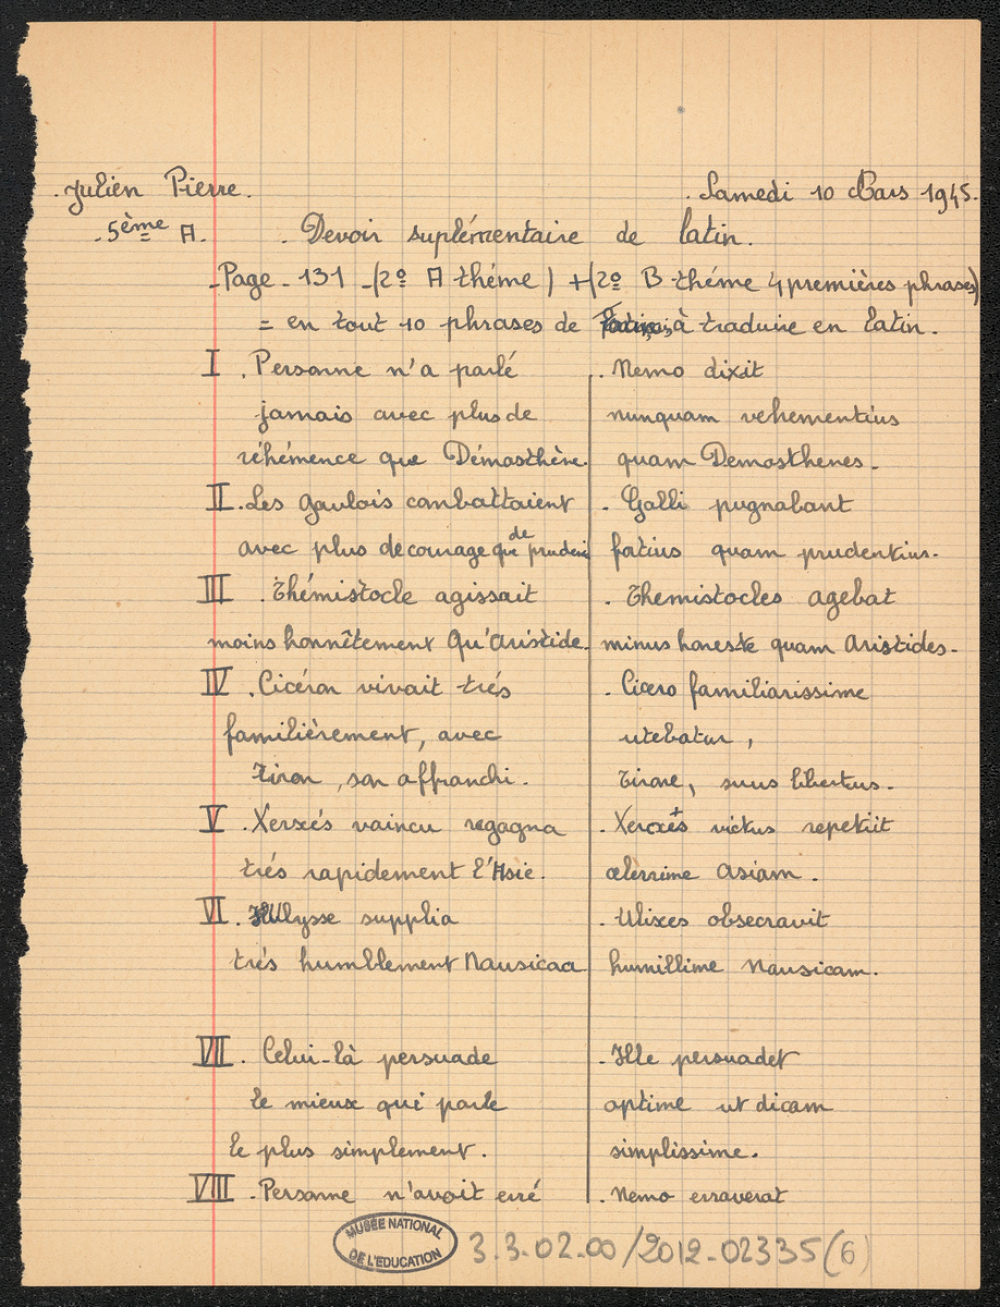 . Julien Pierre.
. Samedi 10 Mars 1945.
. 5ème A.
. Devoir suplémentaire de latin.
. Page 131 - (2º A thème) + (2º B thème 4 premières phrases)
= en tout 10 phrases de à traduire en latin.
I . Personne n'a parlé
jamais avec plus de
véhémence que Démosthène.
. Nemo dixit
nunquam vehementius
quam Demosthenes.
II . Les Gaulois combattaient
avec plus de courage que de prudence
. Galli pugnabant
fortius quam prudentius.
III . Thémistocle agissait
moins honnîtement Qu'Aristide.
. Themistocles agebat
minus honeste quam Aristides.
IV . Cicéron vivait trés
familièrement, avec
Tiron, son affranchi.
. Cicero familiarissime
utebatur,
Tirone, suus libertus.
V . Xerxés vaincu regagna
trés rapidement l'Asie.
. Xerxés victus repetiit
celerrime Asiam.
VI . Ulysse supplia
trés humblement Nausicaa
. Ulixes obsecravit
humillime Nausicam.
VII . Celui-là persuade
le mieux qui parle
le plus simplement.
. Ille persuadet
optime ut dicam
simplissime.
VIII . Personne n'avait erré
. Nemo erraverat
MUSÉE NATIONAL
DE L'EDUCATION
3.3.02.00/2012-02335(6)